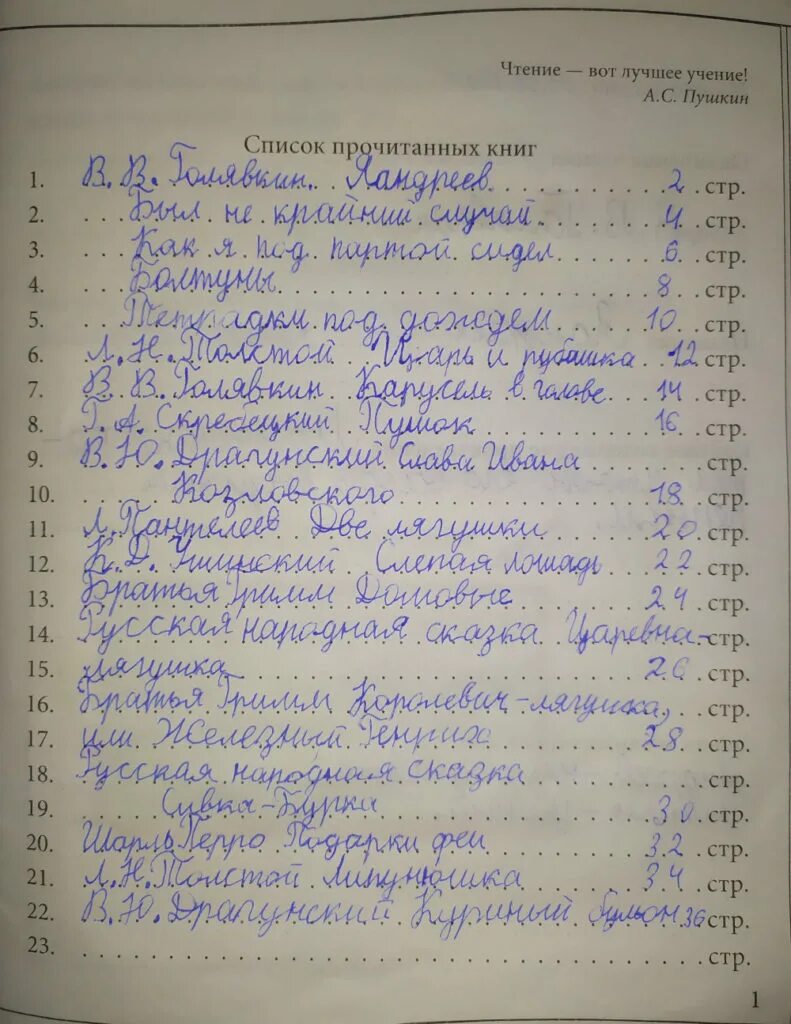 Чтение — вот лучшее учение!
А.С. Пушкин
Список прочитанных книг
1. В. В. Голявкин. Яандреев 2 стр.
2. Был не крайний случай 4 стр.
3. Как я под партой сидел 6 стр.
4. Болтуны 8 стр.
5. Тетрадки под дождем 10 стр.
6. Л. Н. Толстой Царь и рубашка 12 стр.
7. В. В. Голявкин Карусель в голове 14 стр.
8. Г. А. Скребецкий Пушок 16 стр.
9. В. Ю. Драгунский Слава Ивана стр.
10. Козловского 18 стр.
11. Л. Пантелеев Две лягушки 20 стр.
12. К. Д. Ушинский Слепая лошадь 22 стр.
13. Братья Гримм Домовые 24 стр.
14. Русская народная сказка Царевна- стр.
15. лягушка 26 стр.
16. Братья Гримм Королевич-лягушка, стр.
17. или Железный Генрих 28 стр.
18. Русская народная сказка стр.
19. Сивка-Бурка 30 стр.
20. Шарль Перро Подарки феи 32 стр.
21. Л. Н. Толстой Липунюшка 34 стр.
22. В. Ю. Драгунский Куриный бульон 36 стр.
23. стр.
1